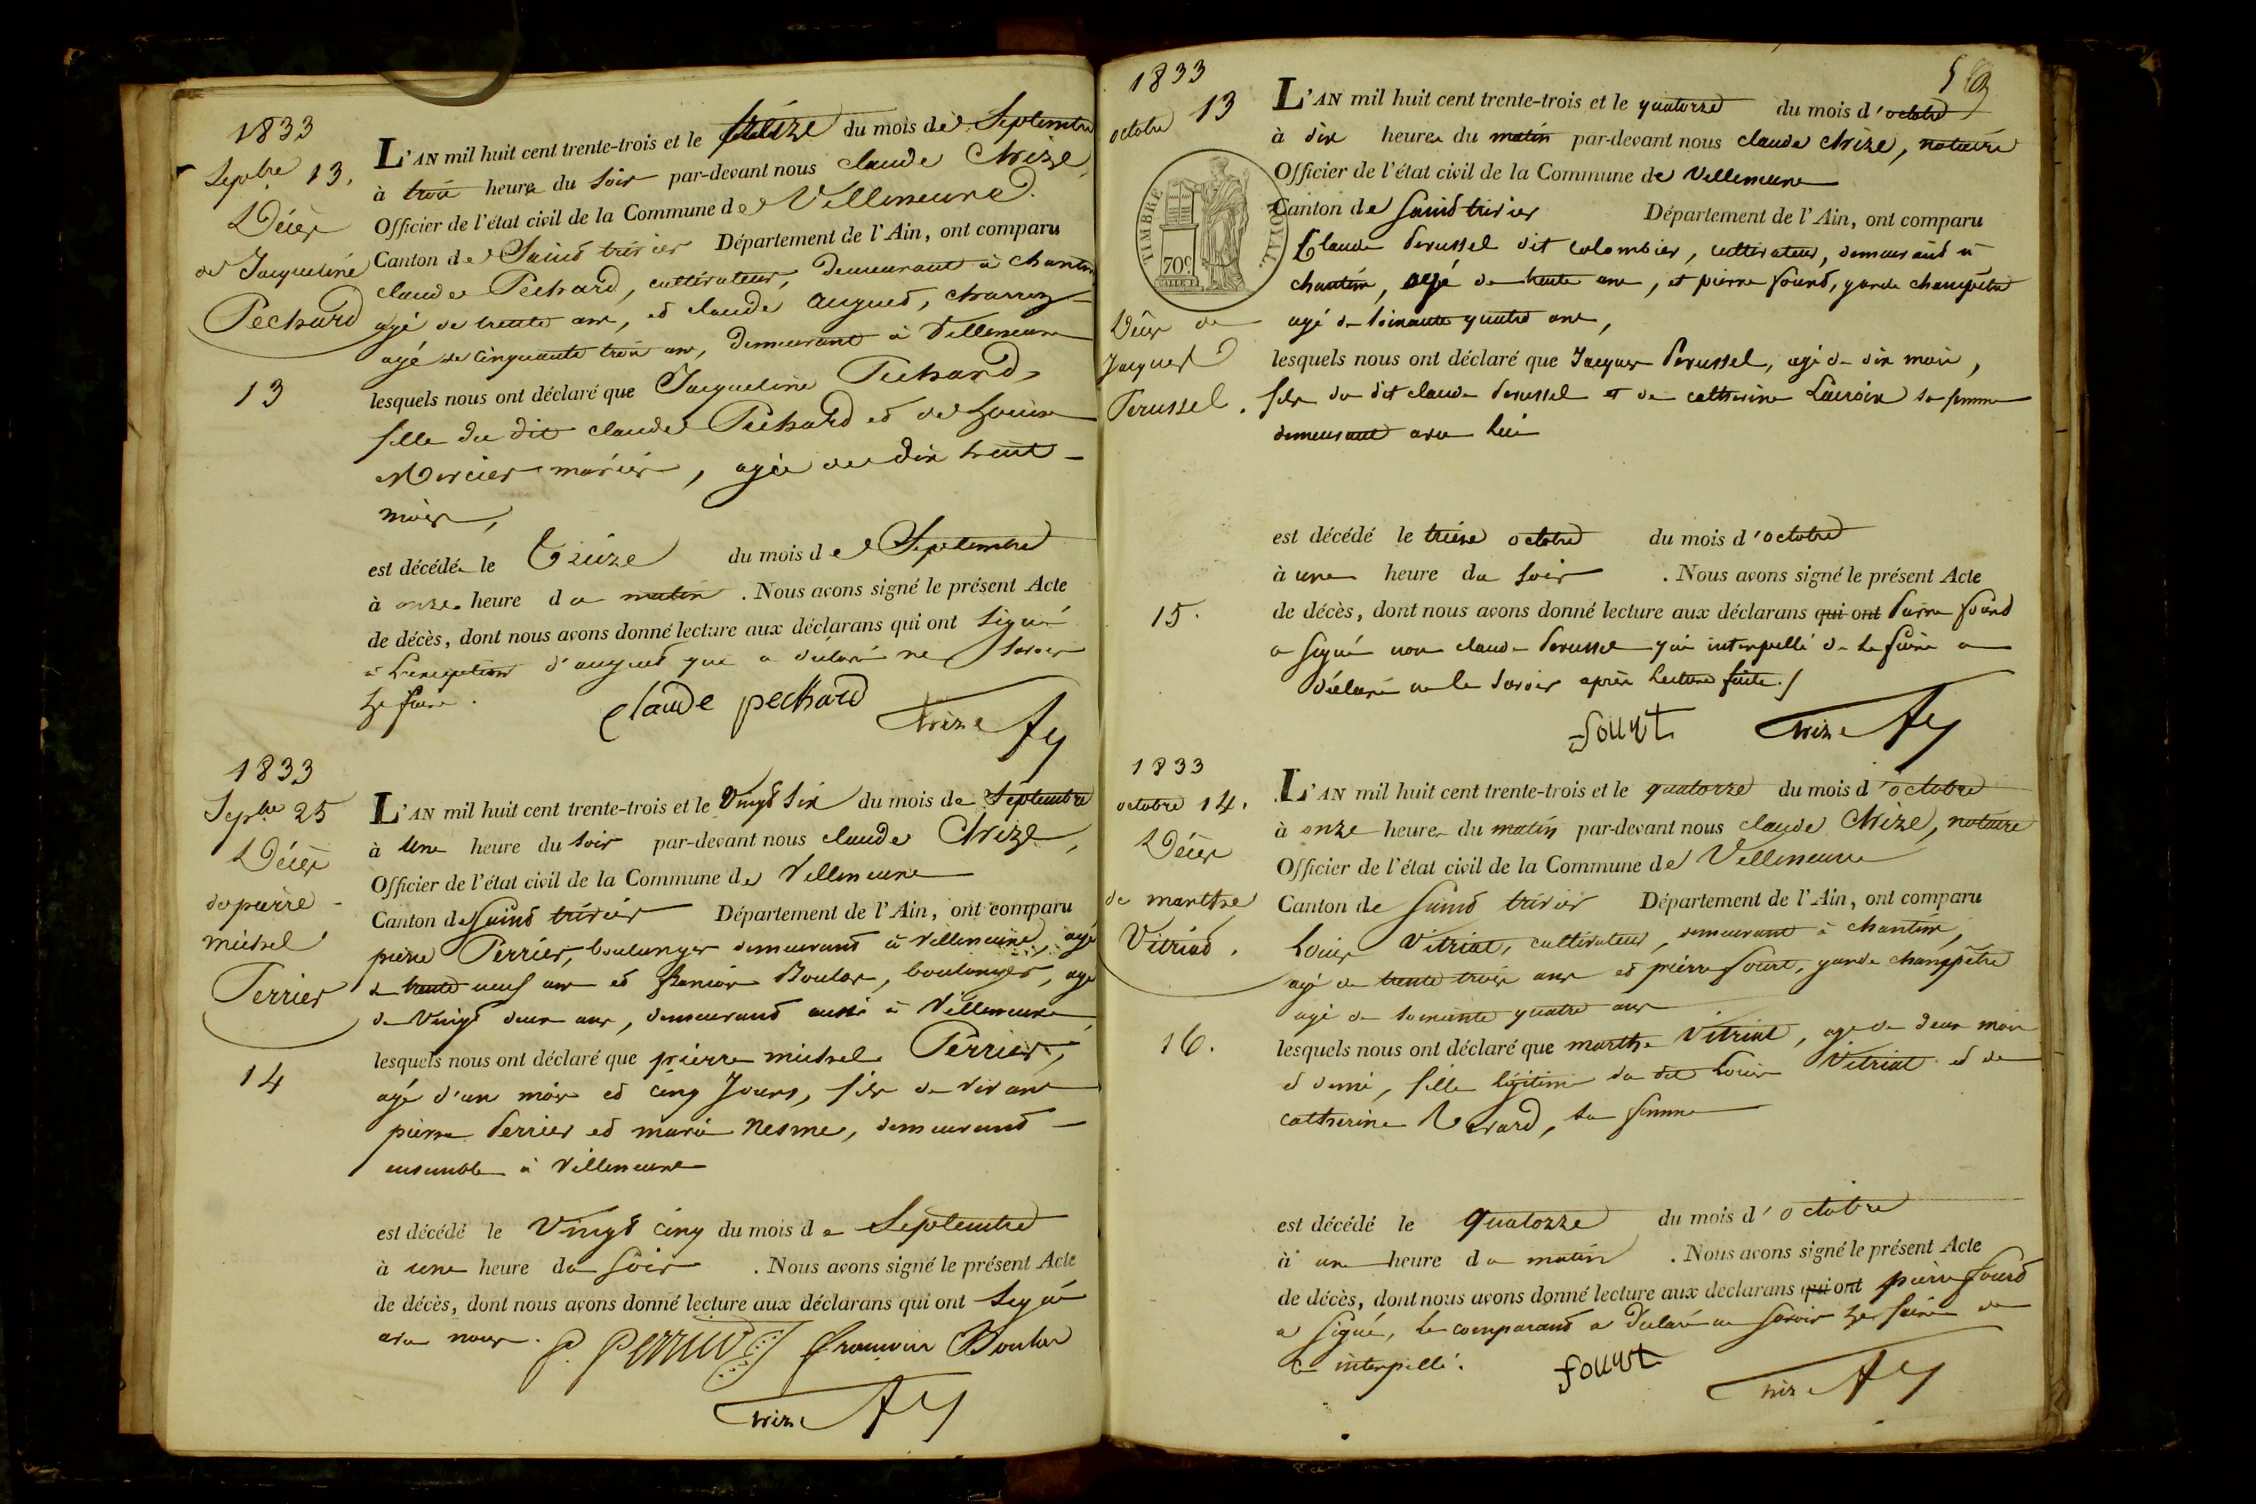 1833
Septbre 13.
Décès
de Jacqueline
Pechard
13
L'AN mil huit cent trente-trois et le treize du mois de Septembre
à trois heures du soir par-devant nous claude Chrize,
Officier de l'état civil de la Commune de Villeneuve
Canton de Saint trivier Département de l'Ain, ont comparu
claude Pechard, cultivateur, demeurant à chantin
agé de trente ans, et claude augued,
agé de cinquante trois ans, demeurant à Villeneuve
lesquels nous ont déclaré que Jacqueline Pechard,
fille du dit claude Pechard et de Louise
Mercier mariés, agée de dix huit
mois,
est décédée le treize du mois de Septembre
à onze heure du matin. Nous avons signé le présent Acte
de décès, dont nous avons donné lecture aux déclarans qui ont signé
à l'exception d'augued qui a déclaré ne savoir
le faire.
claude pechard
1833
Septbre 25
Décès
de pierre
michel
Perrier
14
L'AN mil huit cent trente-trois et le Vingt six du mois de Septembre
à une heure du soir par-devant nous claude Chrize,
Officier de l'état civil de la Commune de Villeneuve
Canton de Saint trivier Département de l'Ain, ont comparu
pierre Perrier, boulanger demeurant à villeneuve, agé
de trente neuf ans et françois Boulas, boulanger, agé
de Vingt deux ans, demeurant aussi à Villeneuve
lesquels nous ont déclaré que pierre michel Perrier,
agé d'un mois et cinq Jours, fils de vivant
pierre Perrier et marie Nesme, demeurand
ensemble à Villeneuve
est décédé le Vingt cinq du mois de Septembre
à une heure du soir. Nous avons signé le présent Acte
de décès, dont nous avons donné lecture aux déclarans qui ont signé
avec nous.
P. Perrier
1833
octobre 13
TIMBRE ROYAL
70c
Décès de
Jacques
Perussel.
15.
L'AN mil huit cent trente-trois et le quatorze du mois d'octobre
à dix heures du matin par-devant nous claude Chrize, notaire
Officier de l'état civil de la Commune de Villeneuve
Canton de Saint trivier Département de l'Ain, ont comparu
Claude Perussel dit Colombier, cultivateur, demeurant à
chantin, agé de trente ans, et pierre fourt, garde champêtre
agé de soixante quatre ans,
lesquels nous ont déclaré que Jacques Perussel, agé de dix mois,
fils du dit claude Perussel et de catherine Lacroix sa femme
demeurant avec lui
est décédé le treize octobre du mois d'octobre
à une heure du soir. Nous avons signé le présent Acte
de décès, dont nous avons donné lecture aux déclarans qui ont Pierre fourt
a signé non claude Perussel qui interpellé de le faire a
déclaré ne le savoir après lecture faite.
fourt
1833
octobre 14.
Décès
de marthe
Vitriat.
16.
L'AN mil huit cent trente-trois et le quatorze du mois d'octobre
à onze heures du matin par-devant nous claude Chrize, notaire
Officier de l'état civil de la Commune de Villeneuve
Canton de Saint trivier Département de l'Ain, ont comparu
Louis Vitriat, cultivateur, demeurant à chantin,
agé de trente trois ans et pierre fourt, garde champêtre
agé de soixante quatre ans
lesquels nous ont déclaré que marthe Vitriat, agé de deux mois
et demi, fille légitime du dit Louis Vitriat et de
catherine, sa femme
est décédé le quatorze du mois d'octobre
à une heure du matin. Nous avons signé le présent Acte
de décès, dont nous avons donné lecture aux déclarans qui ont pierre fourt
a signé, le comparant a déclaré ne savoir le faire de
ce interpellé.
fourt